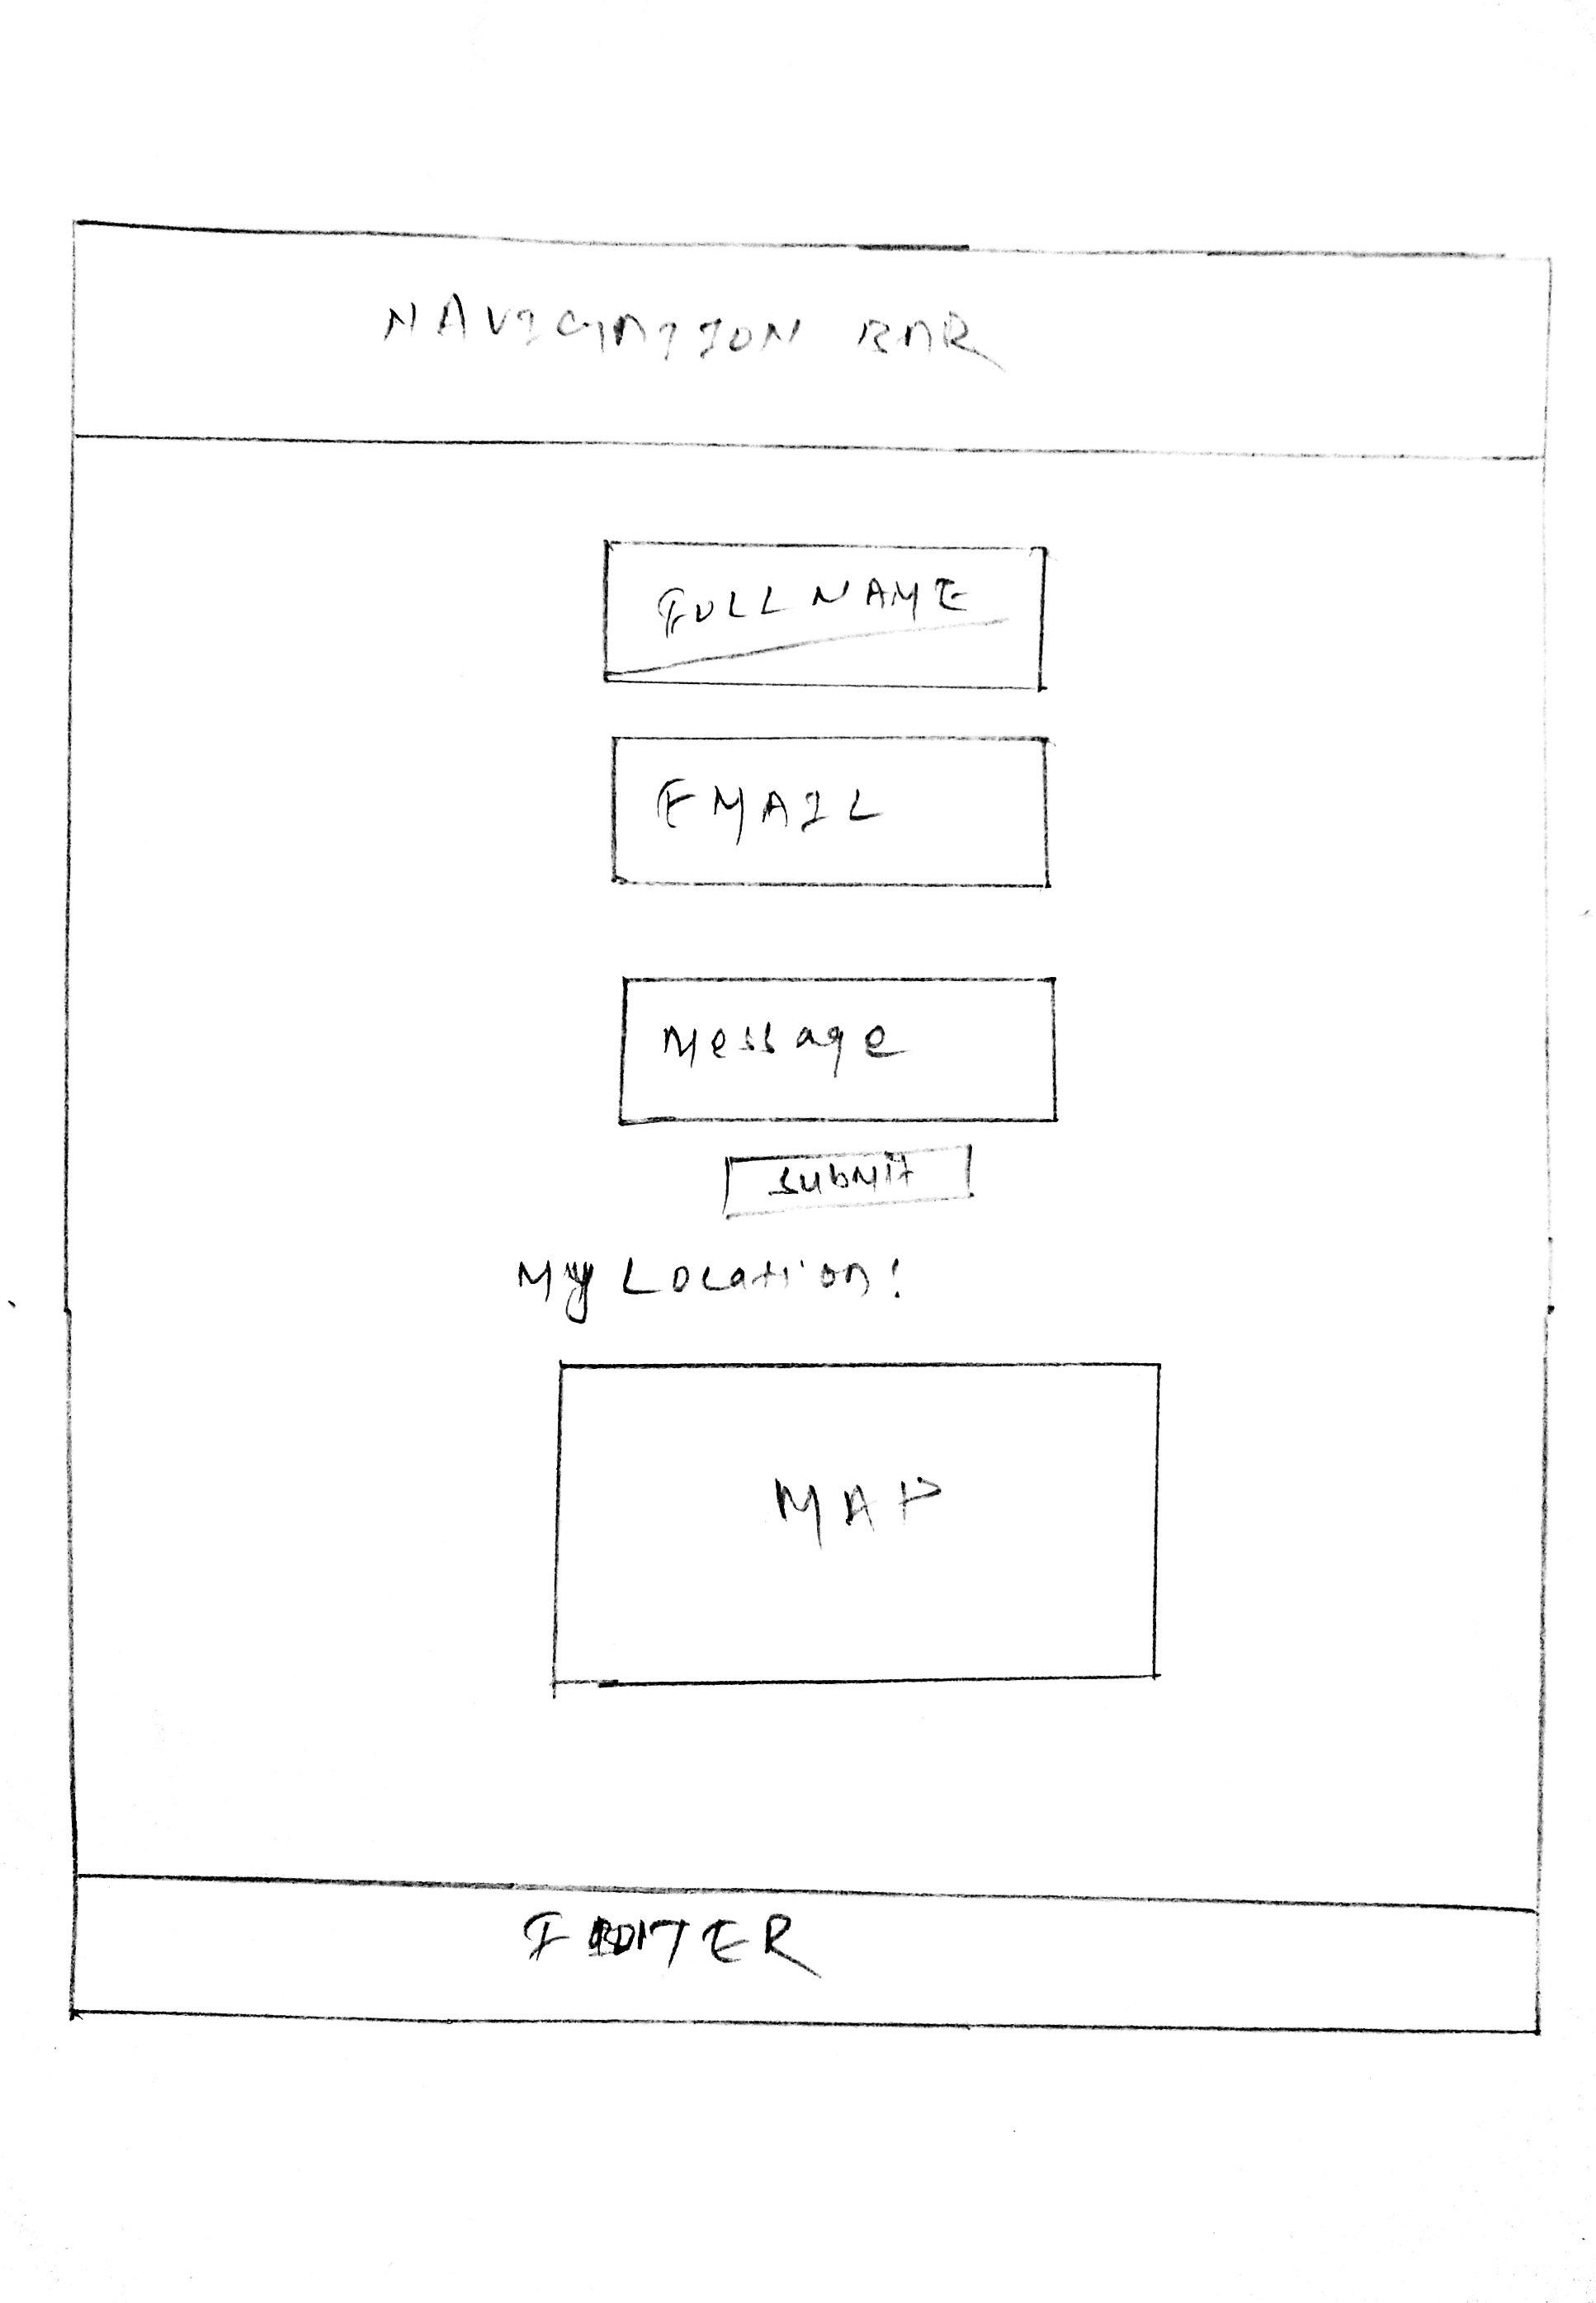 NAVIGATION BAR
FULL NAME
EMAIL
Message
Submit
My Location:
MAP
FOOTER